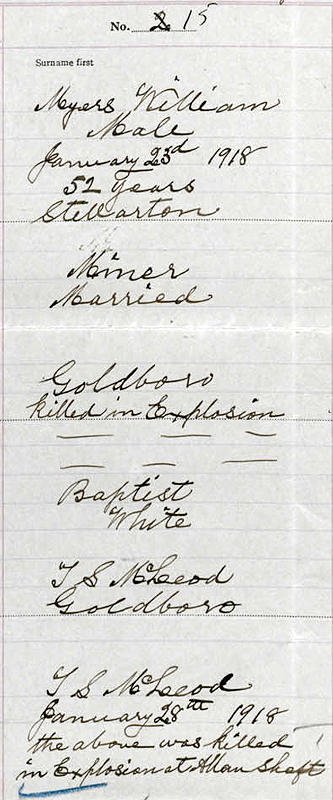 No. 2 15
Surname first
Myers William
Male
January 23d 1918
52 years
Stellarton
Miner
Married
Goldboro
killed in Explosion
Baptist
White
T S McLeod
Goldboro
T S McLeod
January 28th 1918
the above was killed
in Explosion at Allan Shaft